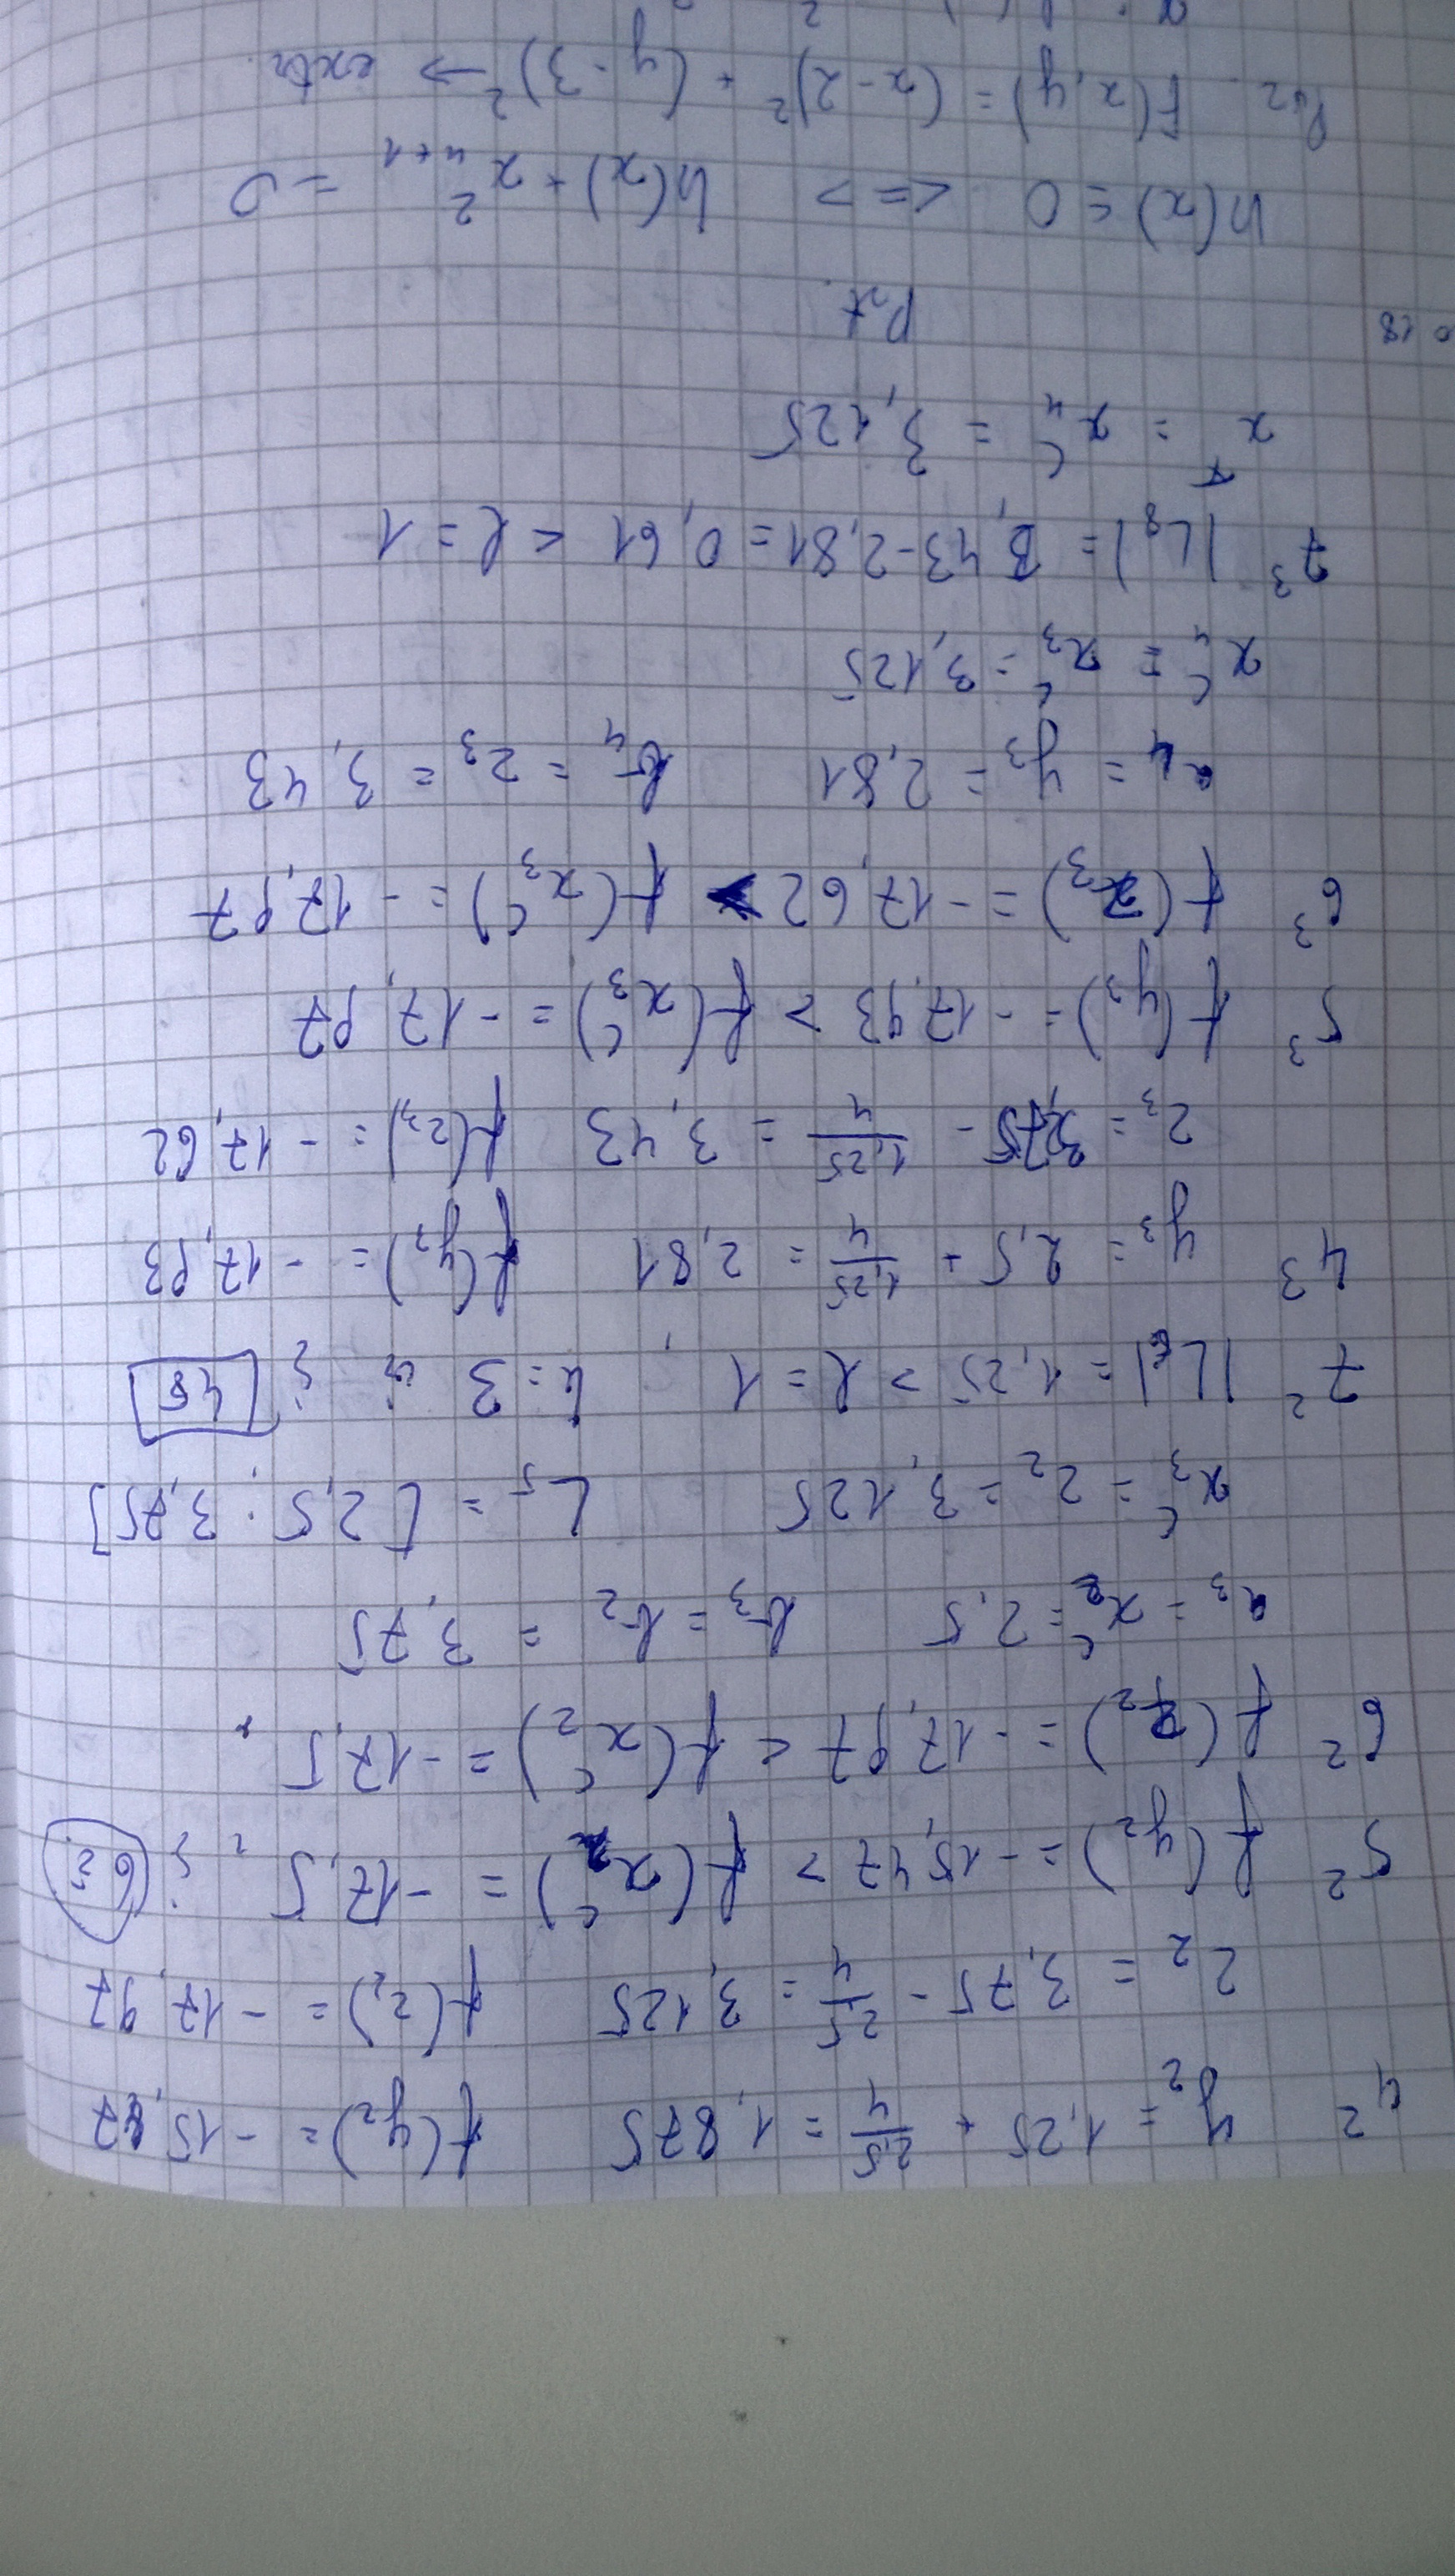 4² y₂ = 1,25 + 2,5/4 = 1,875 f(y₂) = -15,47
z₂ = 3,75 - 2,5/4 = 3,125 f(z₂) = -17,97
5² f(y₂) = -15,47 > f(x₂ᶜ) = -17,5, į 6ž.
6² f(z₂) = -17,97 < f(x₂ᶜ) = -17,5,
a₃ = x₂ᶜ = 2,5 b₃ = b₂ = 3,75
x₃ᶜ = z₂ = 3,125 L₅ = [2,5 ; 3,75]
7² |L₆| = 1,25 > l = 1, k = 3 ir į 4ž
4³ y₃ = 2,5 + 1,25/4 = 2,81 f(y₃) = -17,93
z₃ = 3,75 - 1,25/4 = 3,43 f(z₃) = -17,62
5³ f(y₃) = -17,93 > f(x₃ᶜ) = -17,97
6³ f(z₃) = -17,62 > f(x₃ᶜ) = -17,97
a₄ = y₃ = 2,81 b₄ = z₃ = 3,43
x₄ᶜ = x₃ᶜ = 3,125
7³ |L₈| = 3,43 - 2,81 = 0,61 < l = 1
x* = x₄ᶜ = 3,125
18
h(x) ≤ 0 <=> h(x) + x²ₙ₊₁ = 0
Pvz. F(x,y) = (x-2)² + (y-3)² → extr.